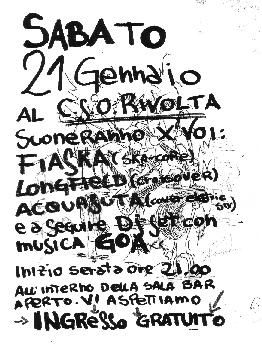 SABATO
21 Gennaio
AL CSO RIVOLTA
SUONERANNO X VOI:
FIASKA (SKA-CORE)
LONGFIELD (CROSSOVER)
ACQUASUTA (cover
e a seguire DJ set con
MUSICA GOA
Inizio serata ore 21,00
ALL'INTERNO DELLA SALA BAR
APERTO. VI ASPETTIAMO
→ INGResso GRATUITO